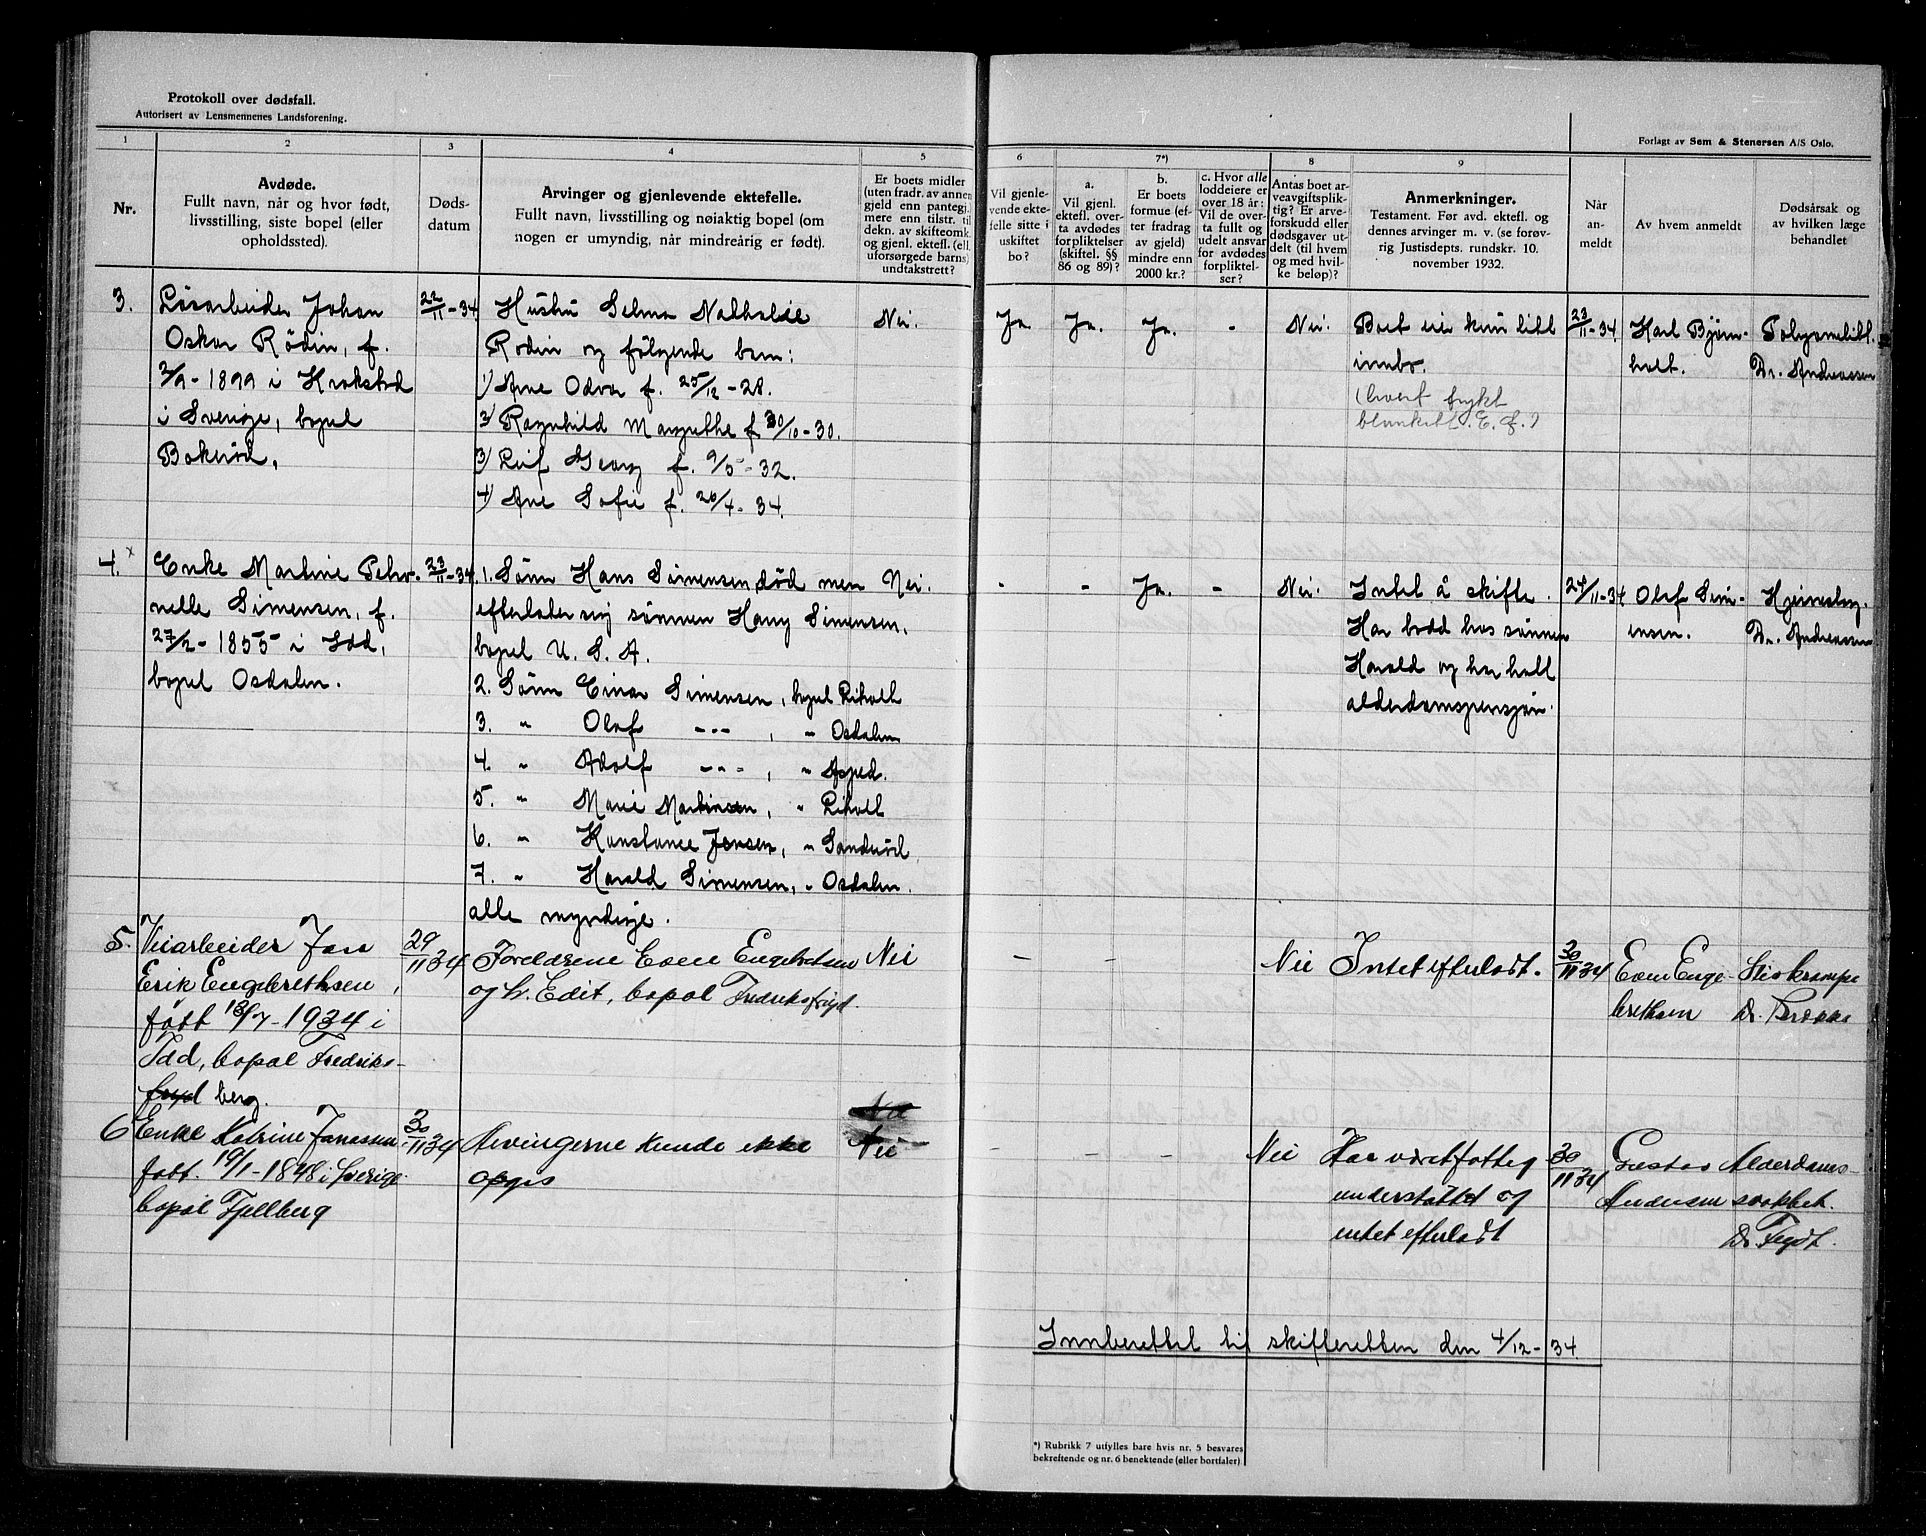 Protokoll over dødsfall.
Autorisert av Lensmennenes Landsforening.
Forlagt av Sem & Stenersen A/S Oslo.
1
2
3
4
5
6
7*)
8
9
Nr.
Avdøde.
Fullt navn, når og hvor født,
livsstilling, siste bopel (eller
opholdssted).
Døds-
datum
Arvinger og gjenlevende ektefelle.
Fullt navn, livsstilling og nøiaktig bopel (om
nogen er umyndig, når mindreårig er født).
Er boets midler
(uten fradr. av annen
gjeld enn pantegj.)
mere enn tilstr. til
dekn. av skifteomk.
og gjenl. ektefl. (ell.
uforsørgede barns)
undtakstrett?
Vil gjenle-
vende ekte-
felle sitte i
uskiftet
bo?
a.
Vil gjenl.
ektefl. over-
ta avdødes
forpliktelser
(skiftel. §§
86 og 89)?
b.
Er boets
formue (ef-
ter fradrag
av gjeld)
mindre enn
2000 kr.?
c. Hvor alle
loddeiere er
over 18 år:
Vil de over-
ta fullt og
udelt ansvar
for avdødes
forpliktel-
ser?
Antas boet ar-
veavgiftsplik-
tig? Er arve-
forskudd eller
dødsgaver ut-
delt (til hvem
og med hvil-
ke beløp)?
Anmerkninger.
Testament. Før avd. ektefl. og
dennes arvinger m. v. (se forøv-
rig Justisdepts. rundskr. 10.
november 1932.
Når
an-
meldt
Av hvem anmeldt
Dødsårsak og
av hvilken læge
behandlet
3.
Løsarbeider Johan
Oskar Rødin, f.
2/9 - 1899 i Krokstad
i Sverige, bopel
Bakerød.
22/11 - 34
Hustru Selma Nathalie
Rodin og følgende barn:
1) Arne Odvar f. 25/12 - 28.
2) Ragnhild Margrethe f 30/10 - 30.
3) Leif Georg f. 9/5 - 32.
4) Ane Sofie f. 26/4 - 34.
Nei.
Ja.
Ja.
Ja.
-
Nei.
Boet eier kun litt
innbo.
(hvert trykt
blankett. E. f.)
23/11 - 34.
Karl Bjørn-
holt.
Dr. Andreassen
4. x
Enke Martine Petr-
nelle Simensen, f.
27/2 - 1855 i Idd,
bopel Osdalen.
23/11 - 34.
1. Sønn Hans Simensen død men
efterlater sig sønnen Harry Simensen,
bopel U. S. A.
2. Sønn Einar Simensen, bopel Liholt
3. " Olaf --- , " Osdalen
4. " Adolf --- , " Asped.
5. " Marie Martinsen, " Liholt
6. " Konstance Jensen, " Sandrød.
7. " Harald Simensen, " Osdalen.
alle myndige.
Nei.
-
-
Ja.
-
Nei.
Intet å skifte.
Har bodd hos sønnen
Harald og har hatt
alderdomspensjon.
24/11 - 34
Olaf Sim-
ensen.
Hjerneslag.
Dr. Andreassen
5.
Veiarbeider Jan
Erik Engebrethsen,
født 18/7 - 1934 i
Idd, bopal Fredriks-
fryd berg.
29/11 34
Foreldrene Even Engebretsen
og h. Edit, bopal Fredriksfryd.
Nei
-
-
-
Nei
Intet efterladt.
30/11 34
Even Enge-
brethsen
Dr. Brekke
6
Enke Katrine Janssen
født. 19/1 - 1848 i Sverige
bopal Fjellberg
30/11 34
Arvingerne kunde ikke
opgis
Nei
Nei
-
-
-
-
Nei
Har været fattig
understøttet og
intet efterladt
30/11 34
Gustav
Andersen
Alderdoms-
svakhet.
Dr. Fejdt.
Innberettet til skifteretten den 4/12 - 34
*) Rubrikk 7 utfylles bare hvis nr. 5 besvares
bekreftende og nr. 6 benektende (eller bortfaler)